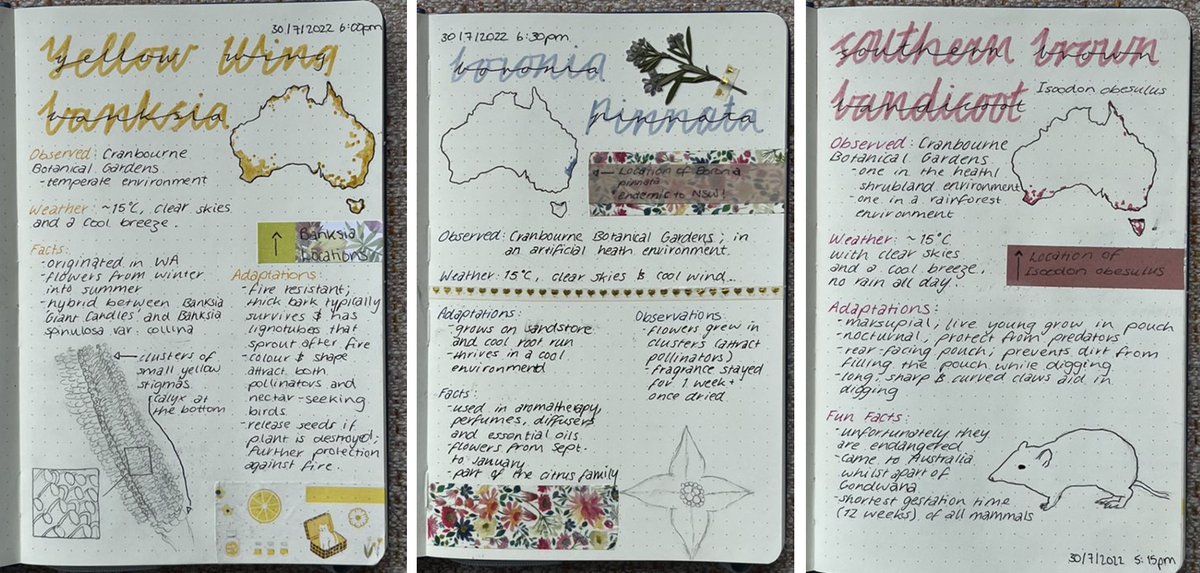 30/7/2022 6:00pm
Yellow Wing
banksia
Observed: Cranbourne
Botanical Gardens
- temperate environment
Weather: ~15°C, clear skies
and a cool breeze.
↑ Banksia
Locations
Facts:
- originated in WA
- flowers from winter
into summer
- hybrid between Banksia
'Giant Candles' and Banksia
spinulosa var. collina
Adaptations:
- fire resistant;
thick bark typically
survives & has
lignotubes that
sprout after fire
- colour & shape
attract both
pollinators and
nectar-seeking
birds
- release seeds if
plant is destroyed;
further protection
against fire.
← clusters of
small yellow
stigmas
calyx at
the bottom
30/7/2022 6:30pm
boronia
pinnata
← Location of Boronia
pinnata
* endemic to NSW!
Observed: Cranbourne Botanical Gardens; in
an artificial heath environment.
Weather: 15°C, clear skies & cool wind..
Adaptations:
- grows on sandstone
and cool root run
- thrives in a cool
environment
Observations:
- flowers grew in
clusters (attract
pollinators)
- fragrance stayed
for 1 week+
once dried
Facts:
- used in aromatherapy,
perfumes, diffusers
and essential oils
- flowers from Sept.
to January
- part of the citrus family
southern brown
bandicoot
Isoodon obesulus
Observed: Cranbourne
Botanical Gardens
- one in the heath/
shrubland environment
- one in a rainforest
environment
Weather: ~15°C
with clear skies
and a cool breeze,
no rain all day.
↑ Location of
Isoodon obesulus
Adaptations:
- marsupial; live young grow in pouch
- nocturnal, protect from predators
- rear-facing pouch; prevents dirt from
filling the pouch while digging
- long, sharp & curved claws aid in
digging
Fun Facts:
- unfortunately they
are endangered
- came to Australia
whilst apart of
Gondwana
- shortest gestation time
(12 weeks) of all mammals
30/7/2022 5:15pm